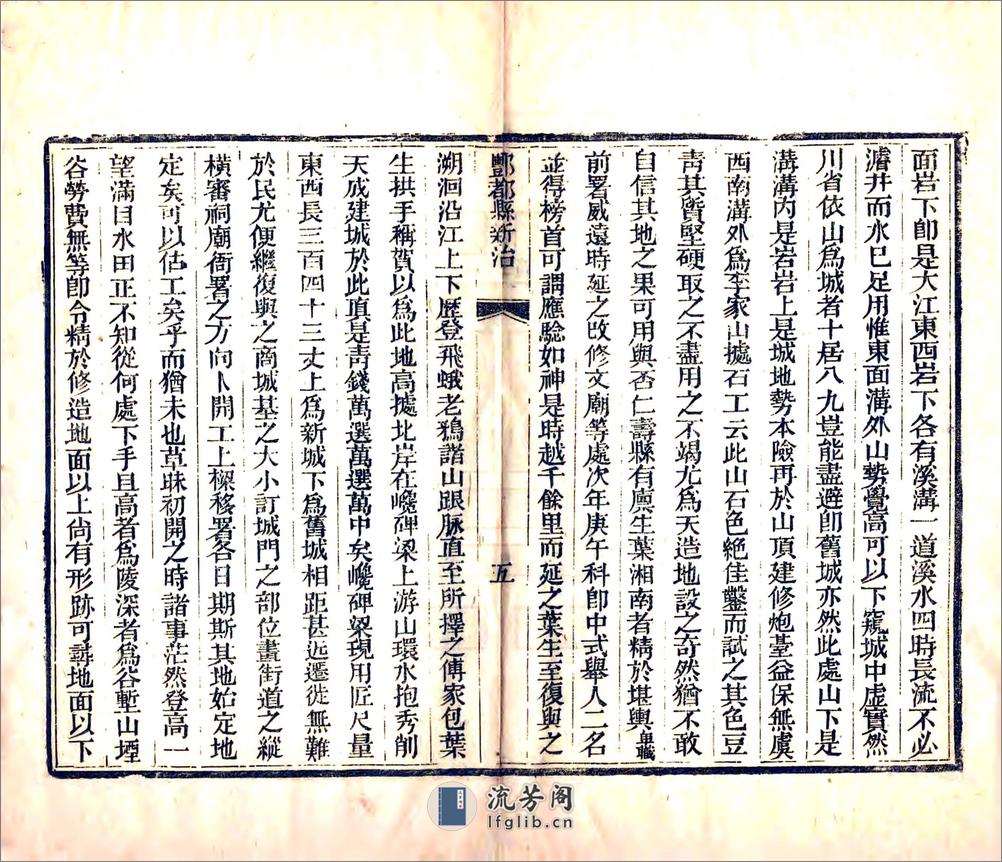 面岩下卽是大江東西岩下各有溪溝一道溪水四時長流不必
濬井而水已足用惟東面溝外山勢覺高可以下窺城中虛實然
川省依山爲城者十居八九豈能盡避卽舊城亦然此處山下是
溝溝內是岩岩上是城地勢本險再於山頂建修炮臺益保無虞
西南溝外爲李家山據石工云此山石色絶佳鑿而試之其色豆
靑其質堅硬取之不盡用之不竭尤爲天造地設之奇然猶不敢
自信其地之果可用與否仁壽縣有廪生葉湘南者精於堪輿卑職
前署威遠時延之改修文廟等處次年庚午科卽中式舉人二名
並得榜首可謂應驗如神是時越千餘里而延之葉生至復與之
酆都縣新治 五
溯洄沿江上下歷登飛蛾老鴉諸山跟脉直至所擇之傅家包葉
生拱手稱賀以爲此地高據北岸在巉碑梁上游山環水抱秀削
天成建城於此頂是靑錢萬選萬選萬中矣巉碑梁現用匠尺量
東西長三百四十三丈上爲新城下爲舊城相距甚近遷徙無難
於民尤便繼復與之商城基之大小訂城門之部位畫街道之縱
橫審祠廟衙署之方向卜開工上樑移署各日期斯其地始定地
定矣可以估工矣乎而猶未也草昧初開之時諸事茫然登高一
望滿目水田正不知從何處下手且高者爲陵深者爲谷塹山堙
谷勞費無等卽令精於修造地面以上尙有形跡可尋地面以下
流芳阁
lfglib.cn